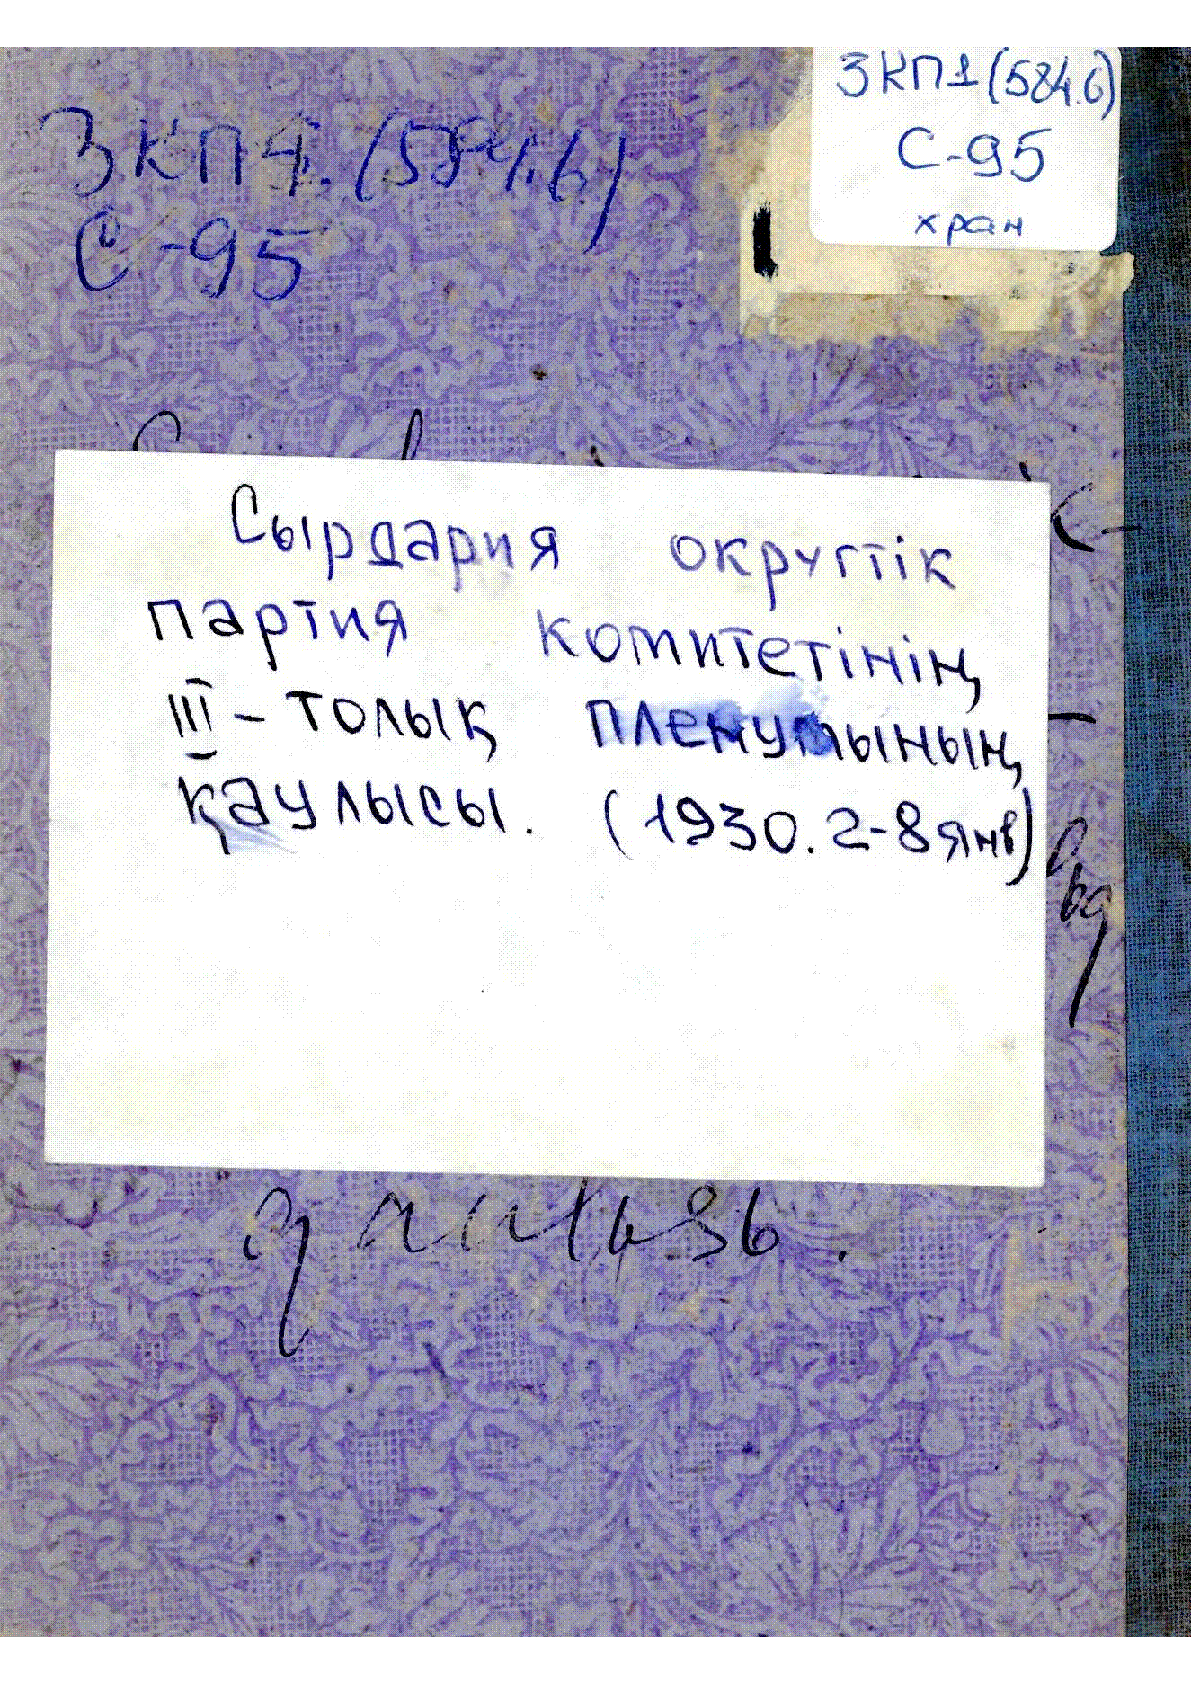 3КП1(584.6)
С-95
хран
3КП1.(584.6)
С-95
Сырдария округтік
партия комитетінің
III-толық пленумының
қаулысы. (1930. 2-8 янв)